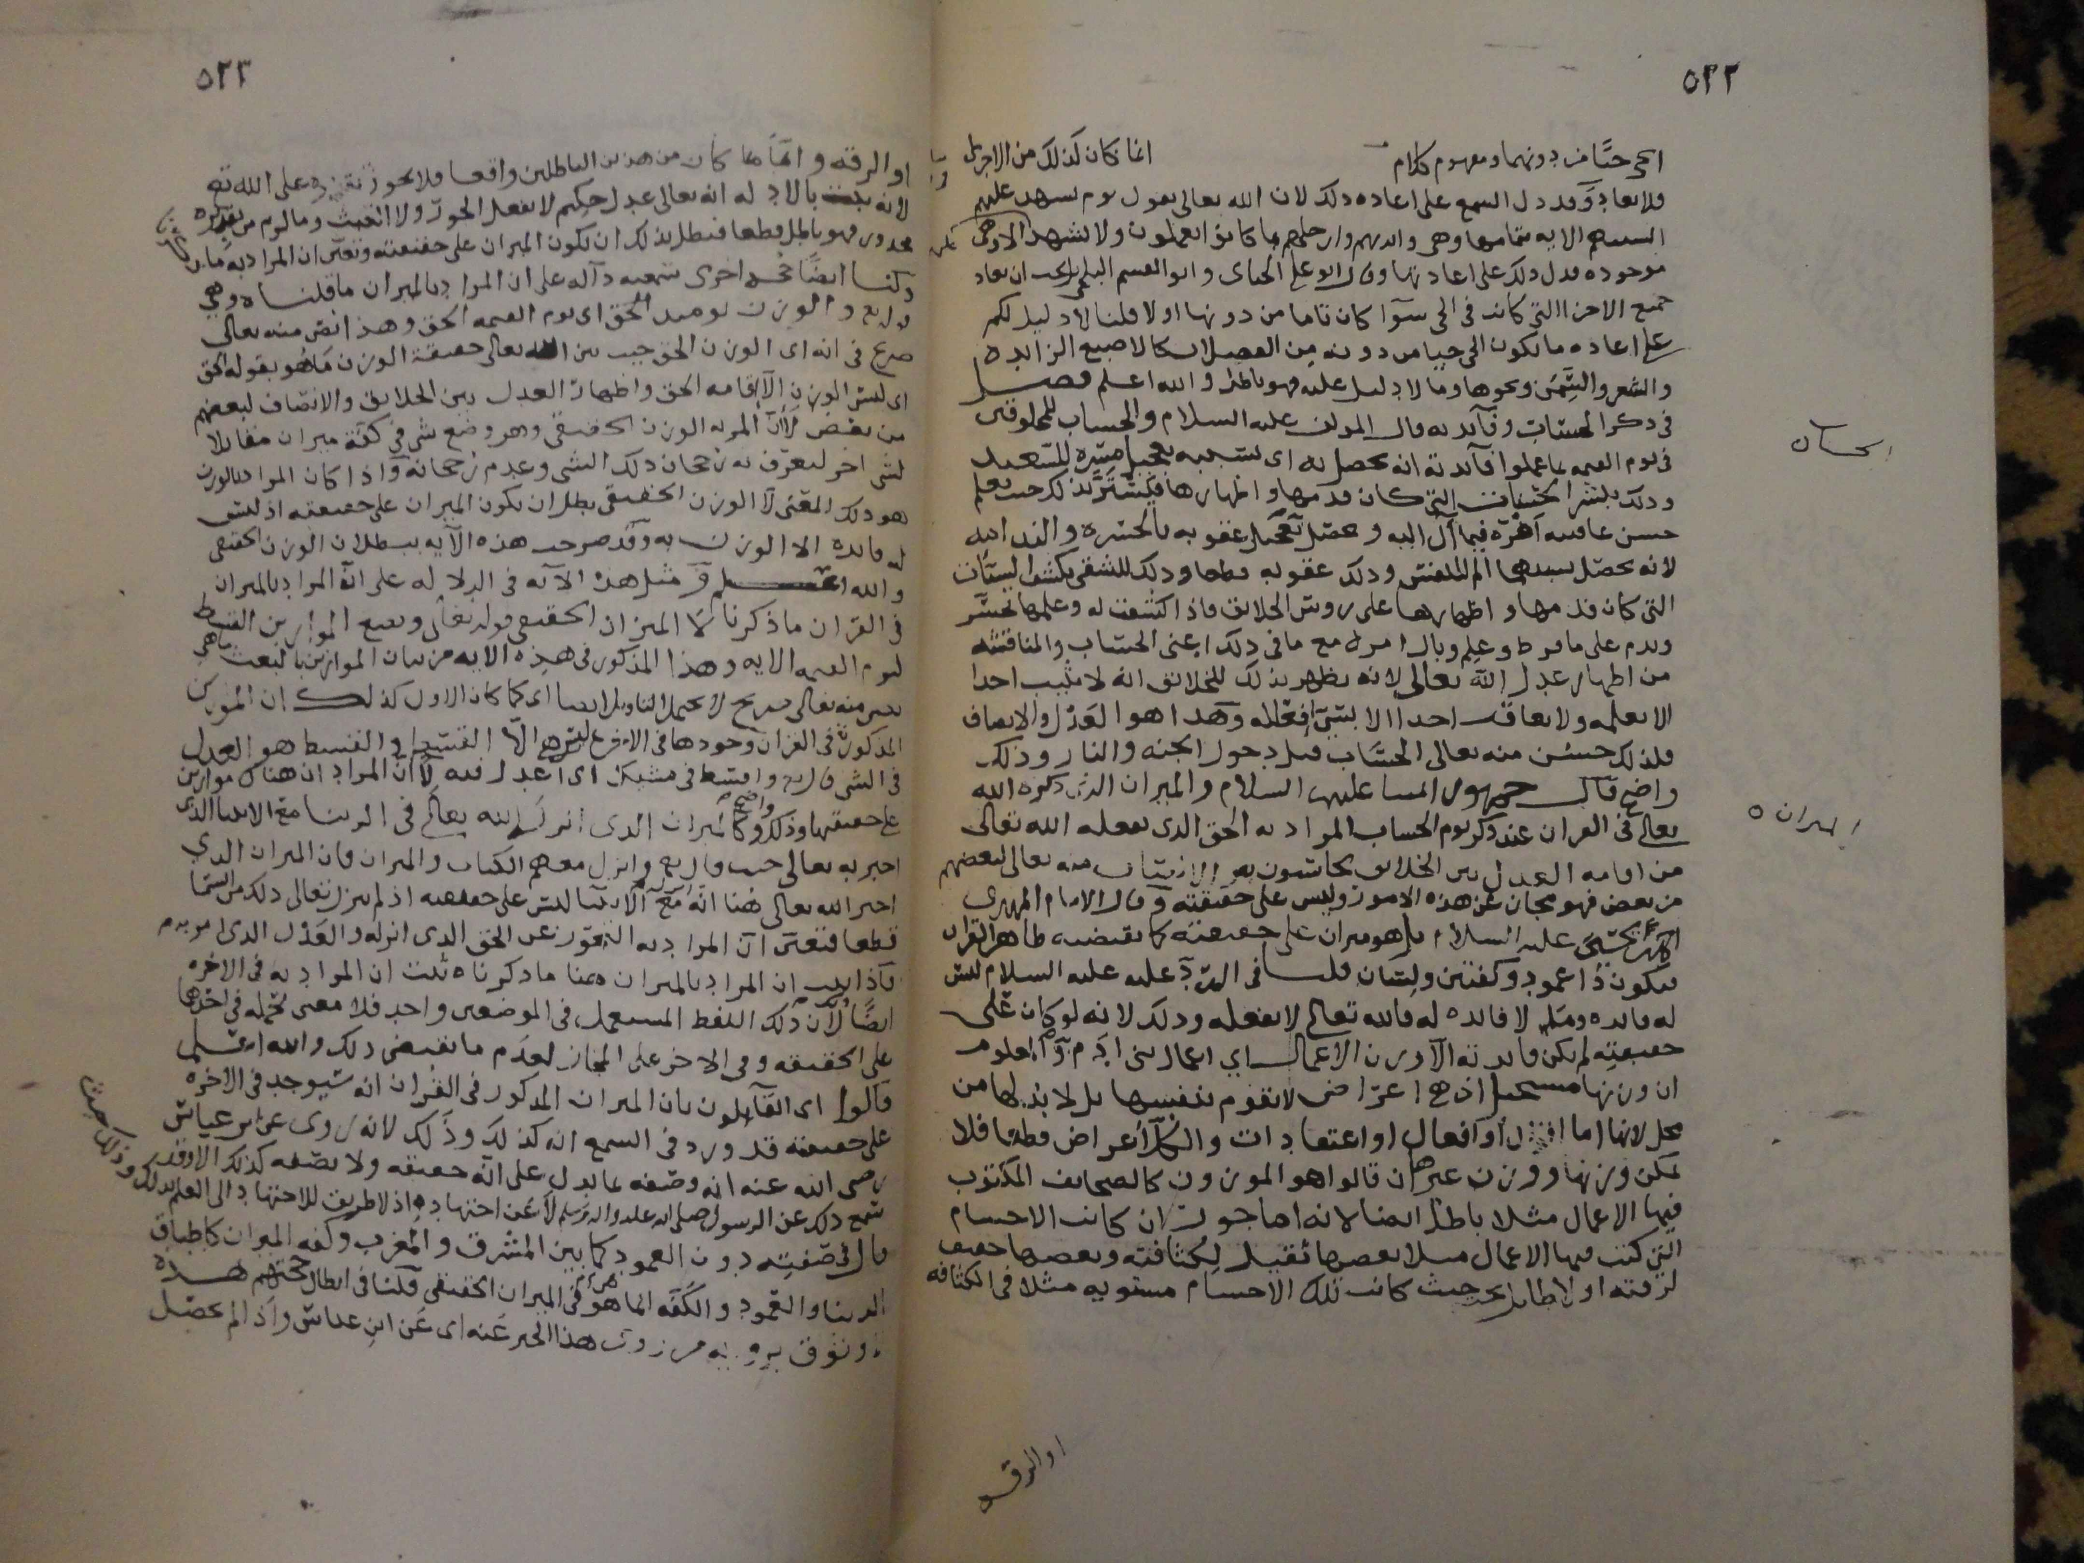 ٥٢٢
الحي حيًّا من دونهما ومفهوم كلام انما كان كذلك من الاجزاء
فلا يعاد وقد دل السمع على اعاده ذلك لان الله تعالى يقول يوم تشهد عليهم
السنتهم الايه بتمامها وهي وايديهم وارجلهم بما كانوا يعملون ولا تشهد الا وهي
موجوده فدل ذلك على اعادتها وقال ابو علي الجبائى وابو القسم البلخي يجب ان يعاد
جميع الاجزا التي كانت في الحي سوآ كان تاما من دونها او لا قلنا لا دليل لكم
على اعاده ما يكون الحي حيا من دونه من الفضلات كالاصبع الزايده
والشعر والسِّمَن ونحوها وما لا دليل عليه فهو باطل والله اعلم فصل
في ذكر الحساب وفآئدته قال المولف عليه السلام والحساب للمخلوقين
الحساب
في يوم القيمه بما عملوا فآئدته انه يحصل به اى بسببه تعجيل مسَرّه للسعيد
وذلك بنشر الحسنات التي كان قدمها واظهارها فيُسَرّ بذلك حيث يعلم
حسن عاقبه امره فيما آل اليه وحصل تعجيل عقوبه بالحسره والندامه
لانه يحصل بسببهما الم للنفس وذلك عقوبه قطعا وذلك للشقي بكشف السيئات
التي كان قدمها واظهارها على رءوس الخلائق فاذا اكشفت له وعلمها تحسّر
وندم على ما فرط وعلم وبال امره مع ما في ذلك اعنى الحساب والمناقشه
من اظهار عدل الله تعالى لانه يظهر بذلك للخلائق انه لا يثيب احدا
الا بعلمه ولا يعاقب احدا الا بسئ افعاله وهذا هو العَدْل والانصاف
فلذلك حسُن منه تعالى الحسَاب قبل دخول الجنه والنار وذلك
واضح قال جمهور ائمتنا عليهم السلام والميزان الذى ذكره الله
الميزان ه
تعالى في القران عند ذكر يوم الحساب المراد به الحق الذى يفعله الله تعالى
من اقامه العدل بين الخلائق
من بعض فهو مجاز عن هذه الامور وليس على حقيقته وقال الامام المهدي
عليه السلام بل هو ميزان على حقيقته كما يقتضيه ظاهر القران
فيكون ذا عمود وكفتين ولسَان قلنا في الردّ عليه عليه السلام ليس
له فائده ومثله لا فائده له فالله تعالى لا يفعله وذلك لانه لو كان على
حقيقته لم يكن فائدته الا وزن الاعمال اي اعمال بنى آدم ومن المعلوم
ان وزنها مستحيل اذ هي اعرَاض لا تقوم بنفسها بل لا بد لها من
محل لانها اما اقوال او افعال او اعتقادات والكل اعراض قطعا فلا
يمكن وزنها ووزن غيرها ان قالوا هو الموزون كالصحايف المكتوب
فيها الاعمال مثلا باطل ايضا لانه اما جور ان كانت الاجسام
التي كتبت فيها الاعمال مثلا بعضها ثقيل لكثافته وبعضها خفيف
لرقته او لا طائل تحته حيث كانت تلك الاجسام مستويه مثلا في الكثافه
او الرقه
٥٢٣
او الرقه وايّمَا ما كان من هذين الباطلين واقعا فلا يجوز تقديره على الله تع
لانه يثبت بالادله انه تعالى عدل حكيم لا يفعل الجور ولا العبث وما لزم من تقديره
محذور فهو باطل قطعا فبطل بذلك ان يكون الميزان على حقيقته وتعين ان المراد به ما ذكرنا
ولنا ايضًا حجه اخرى سمعيه دآله على ان المراد بالميزان ما قلناه وهي
قوله تع والوزن يومئذ الحق اى يوم القيمه الحق وهذا نصّ منه تعالى
صريح في انه اى الوزن الحق حيث بين الله تعالى حقيقة الوزن ما هُو بقوله الحق
اى ليس الوزن الا اقامه الحق واظهار العدل بين الخلائق والانصاف لبعضهم
من بعض لا ان المراد به الوزن الحقيقي وهو وضع شي في كفّة ميزان مقابلا
لشى اخر ليعرف به رجحان ذلك الشي وعدم رجحانه واذا كان المراد بالوزن
هو ذلك المعنى لا الوزن الحقيقي بطل ان يكون الميزان على حقيقته اذ ليس
له فائده الا الوزن به وقد صرحت هذه الآيه ببطلان الوزن الحقيقي
والله اعلم ومثل هذه الآيه في الدلاله على انّ المراد بالميزان
في القران ما ذكرنا لا الميزان الحقيقي قوله تعالى ونضع الموازين القسط
ليوم القيمه الايه وهذا المذكور في هذه الايه من بيان الموازين بالقسط
نص منه تعالى صريح لا يحتمل التاويل ايضا اى كما كان الاول كذلك ان الموازين
المذكورة في القران وجودها في الاخره ليس هي الّا القسط والقسط هو العدل
في الشى قال تع واقسط في مشيك اى اعدل فيه لا ان المراد ان هناك موازين
على حقيقتها وذلك واضح وكالميزان الذى انزل الله تعالى في الدنيا مع الانبيا الذى
اخبر به تعالى حيث قال تع وانزل معهم الكتاب والميزان فان الميزان الذي
اخبر الله تعالى هُنا انه مع الانبيآ ليس على حقيقته اذ لم ينزل تعالى ذلك من السمآ
قطعا فتعين ان المراد به التجوّز عن الحق الذى انزله والعَدْل الذى امر به
فاذا ثبت ان المراد بالميزان هنا ما ذكرناه ثبت ان المراد به في الاخره
ايضًا لان ذلك اللفظ المستعمل في الموضعين واحد فلا معنى لحمله في احدهما
على الحقيقه وفي الاخر على المجاز لعدَم ما يقتضي ذلك والله اعلم
قالوا اى القآئلون بان الميزان المذكور في القران انه سَيوجد في الاخره
على حقيقته قد ورد في السمع انه كذلك وذلك لانه روى عن ابن عباس
رضي الله عنه انه وصَفه بما يدل على انّه حقيقه ولا يصفه كذلك الا وقد
سمع ذلك عن الرسول صلى الله عليه واله وسلم لا عن اجتهاده اذ لا طريق للاجتهاد الى العلم بذلك وذلك حيث
قال في صفته دون العمود كما بين المشرق والمغرب وكفه الميزان كاطباق
الدنيا والعمود والكفه انما هو في الميزان الحقيقي قلنا في ابطال حجتهم هذه
لا وثوق بروايه من روى هذا الخبر عَنه اى عَن ابن عباس واذا لم يحصل